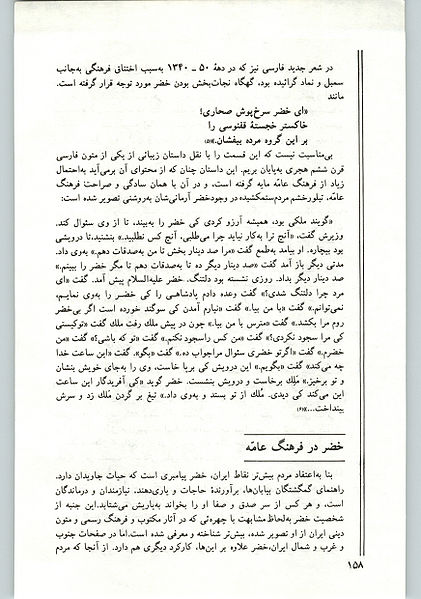 در شعر جدید فارسی نیز که در دههٔ ۵۰ ـ ۱۳۴۰ به‌سبب اختناق فرهنگی به‌جانب
سمبل و نماد گرائیده بود، گهگاه نجات‌بخش بودن خضر مورد توجه قرار گرفته است.
مانند
«ای خضر سرخ‌پوش صحاری!
خاکستر خجستهٔ ققنوسی را
بر این گروه مرده بیفشان.»(۵)
بی‌مناسبت نیست که این قسمت را با نقل داستان زیبائی از یکی از متون فارسی
قرن ششم هجری به‌پایان بریم. این داستان چنان که از محتوای آن برمی‌آید به‌احتمال
زیاد از فرهنگ عامّه مایه گرفته است، و در آن با همان سادگی و صراحت فرهنگ
عامّه، تبلور خشم مردم ستمکشیده در وجود خضر آرمانی‌شان به‌روشنی تصویر شده است:
«گویند ملکی بود، همیشه آرزو کردی که خضر را به‌بیند، تا از وی سئوال کند.
وزیرش گفت، «آنچ ترا به‌کار نیاید چرا می‌طلبی، آنچ کس نطلبید.» بنشنید، تا درویشی
بود بیچاره. او بیامد به‌طمع گفت «مرا صد دینار بخش تا من به‌صدقات دهم.» به‌وی داد.
مدتی دیگر باز آمد گفت «صد دینار دیگر ده تا به‌صدقات دهم تا مگر خضر را ببینم.»
صد دینار دیگر بداد. روزی نشسته بود دلتنگ. خضر علیه‌السلام پیش آمد. گفت «ای
مرد چرا دلتنگ شدی؟» گفت «وعده دادم پادشاهی را کی خضر را به‌وی نمایم،
نمی‌توانم.» گفت «با من بیا.» گفت «نیارم آمدن کی سوگند خورده است اگر بی‌خضر
روم مرا بکشد.» گفت «مترس با من بیا.» چون در پیش ملك رفت ملك گفت «توکیستی
کی مرا سجود نکردی؟» گفت «من کس راسجود نکنم.» گفت «تو که باشی؟» گفت «من
خضرم.» گفت «اگرتو خضری سئوال مراجواب ده.» گفت «بگو». گفت «این ساعت خدا
چه می‌کند» گفت «بگویم.» این درویش کی برپا خاست، وی را به‌جای خویش بنشان
و تو برخیز.» مَلِك برخاست و درویش بنشست. خضر گوید «کی آفریدگار این ساعت
این می‌کند کی دیدی. مُلك از تو بستد و به‌وی داد.» تیغ بر گردن مُلك زد و سرش
بینداخت...»(۶)
خضر در فرهنگ عامّه
بنا به‌اعتقاد مردم بیش‌تر نقاط ایران، خضر پیامبری است که حیات جاویدان دارد.
راهنمای گمگشتگان بیابان‌ها، برآورندهٔ حاجات و یاری‌دهنده نیازمندان و درماندگان
است، و هر کس از سر صدق و صفا او را بخواند به‌یاریش می‌شتابد. این جنبه از
شخصیت خضر به‌لحاظ مشابهت با چهره‌ئی که در آثار مکتوب و فرهنگ رسمی و متون
دینی ایران از او تصویر شده، بیش‌تر شناخته و معرفی شده است. اما در صفحات جنوب
و غرب و شمال ایران، خضر علاوه بر این‌ها، کارکرد دیگری هم دارد. از آنجا که مردم
۱۵۸